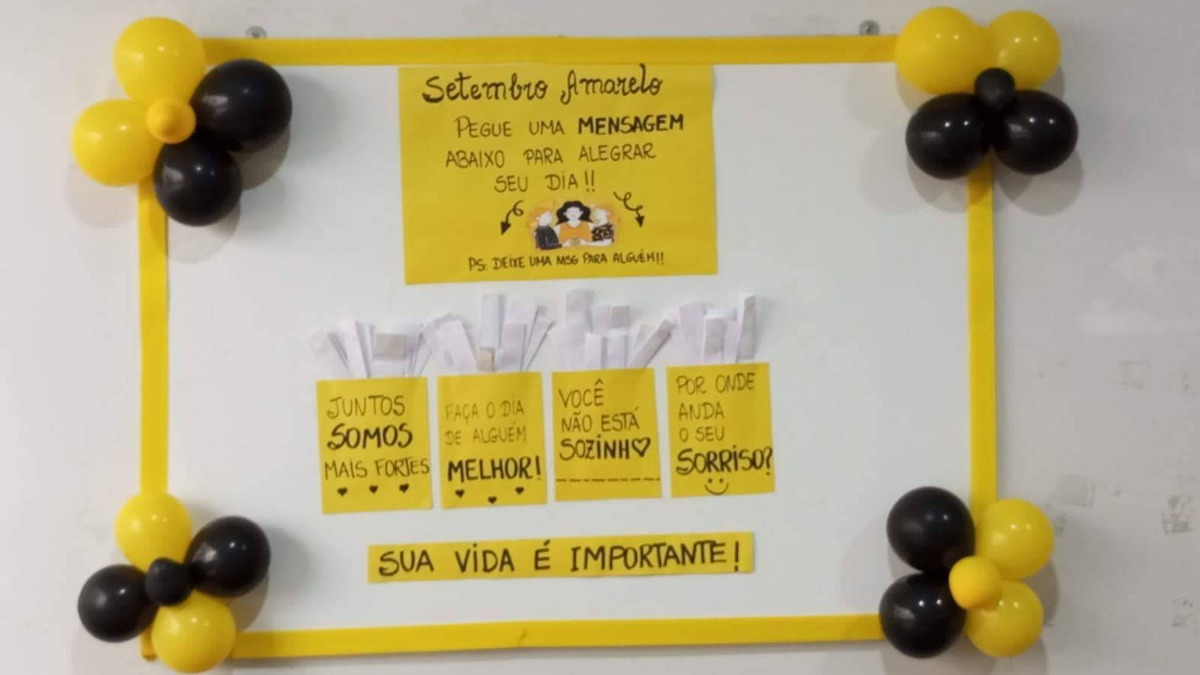 Setembro Amarelo
PEGUE UMA MENSAGEM
ABAIXO PARA ALEGRAR
SEU DIA!!
PS: DEIXE UMA MSG PARA ALGUÉM!!
JUNTOS
SOMOS
MAIS FORTES
FAÇA O DIA
DE ALGUÉM
MELHOR!
VOCÊ
NÃO ESTÁ
SOZINH♡
POR ONDE
ANDA
O SEU
SORRISO?
SUA VIDA É IMPORTANTE!